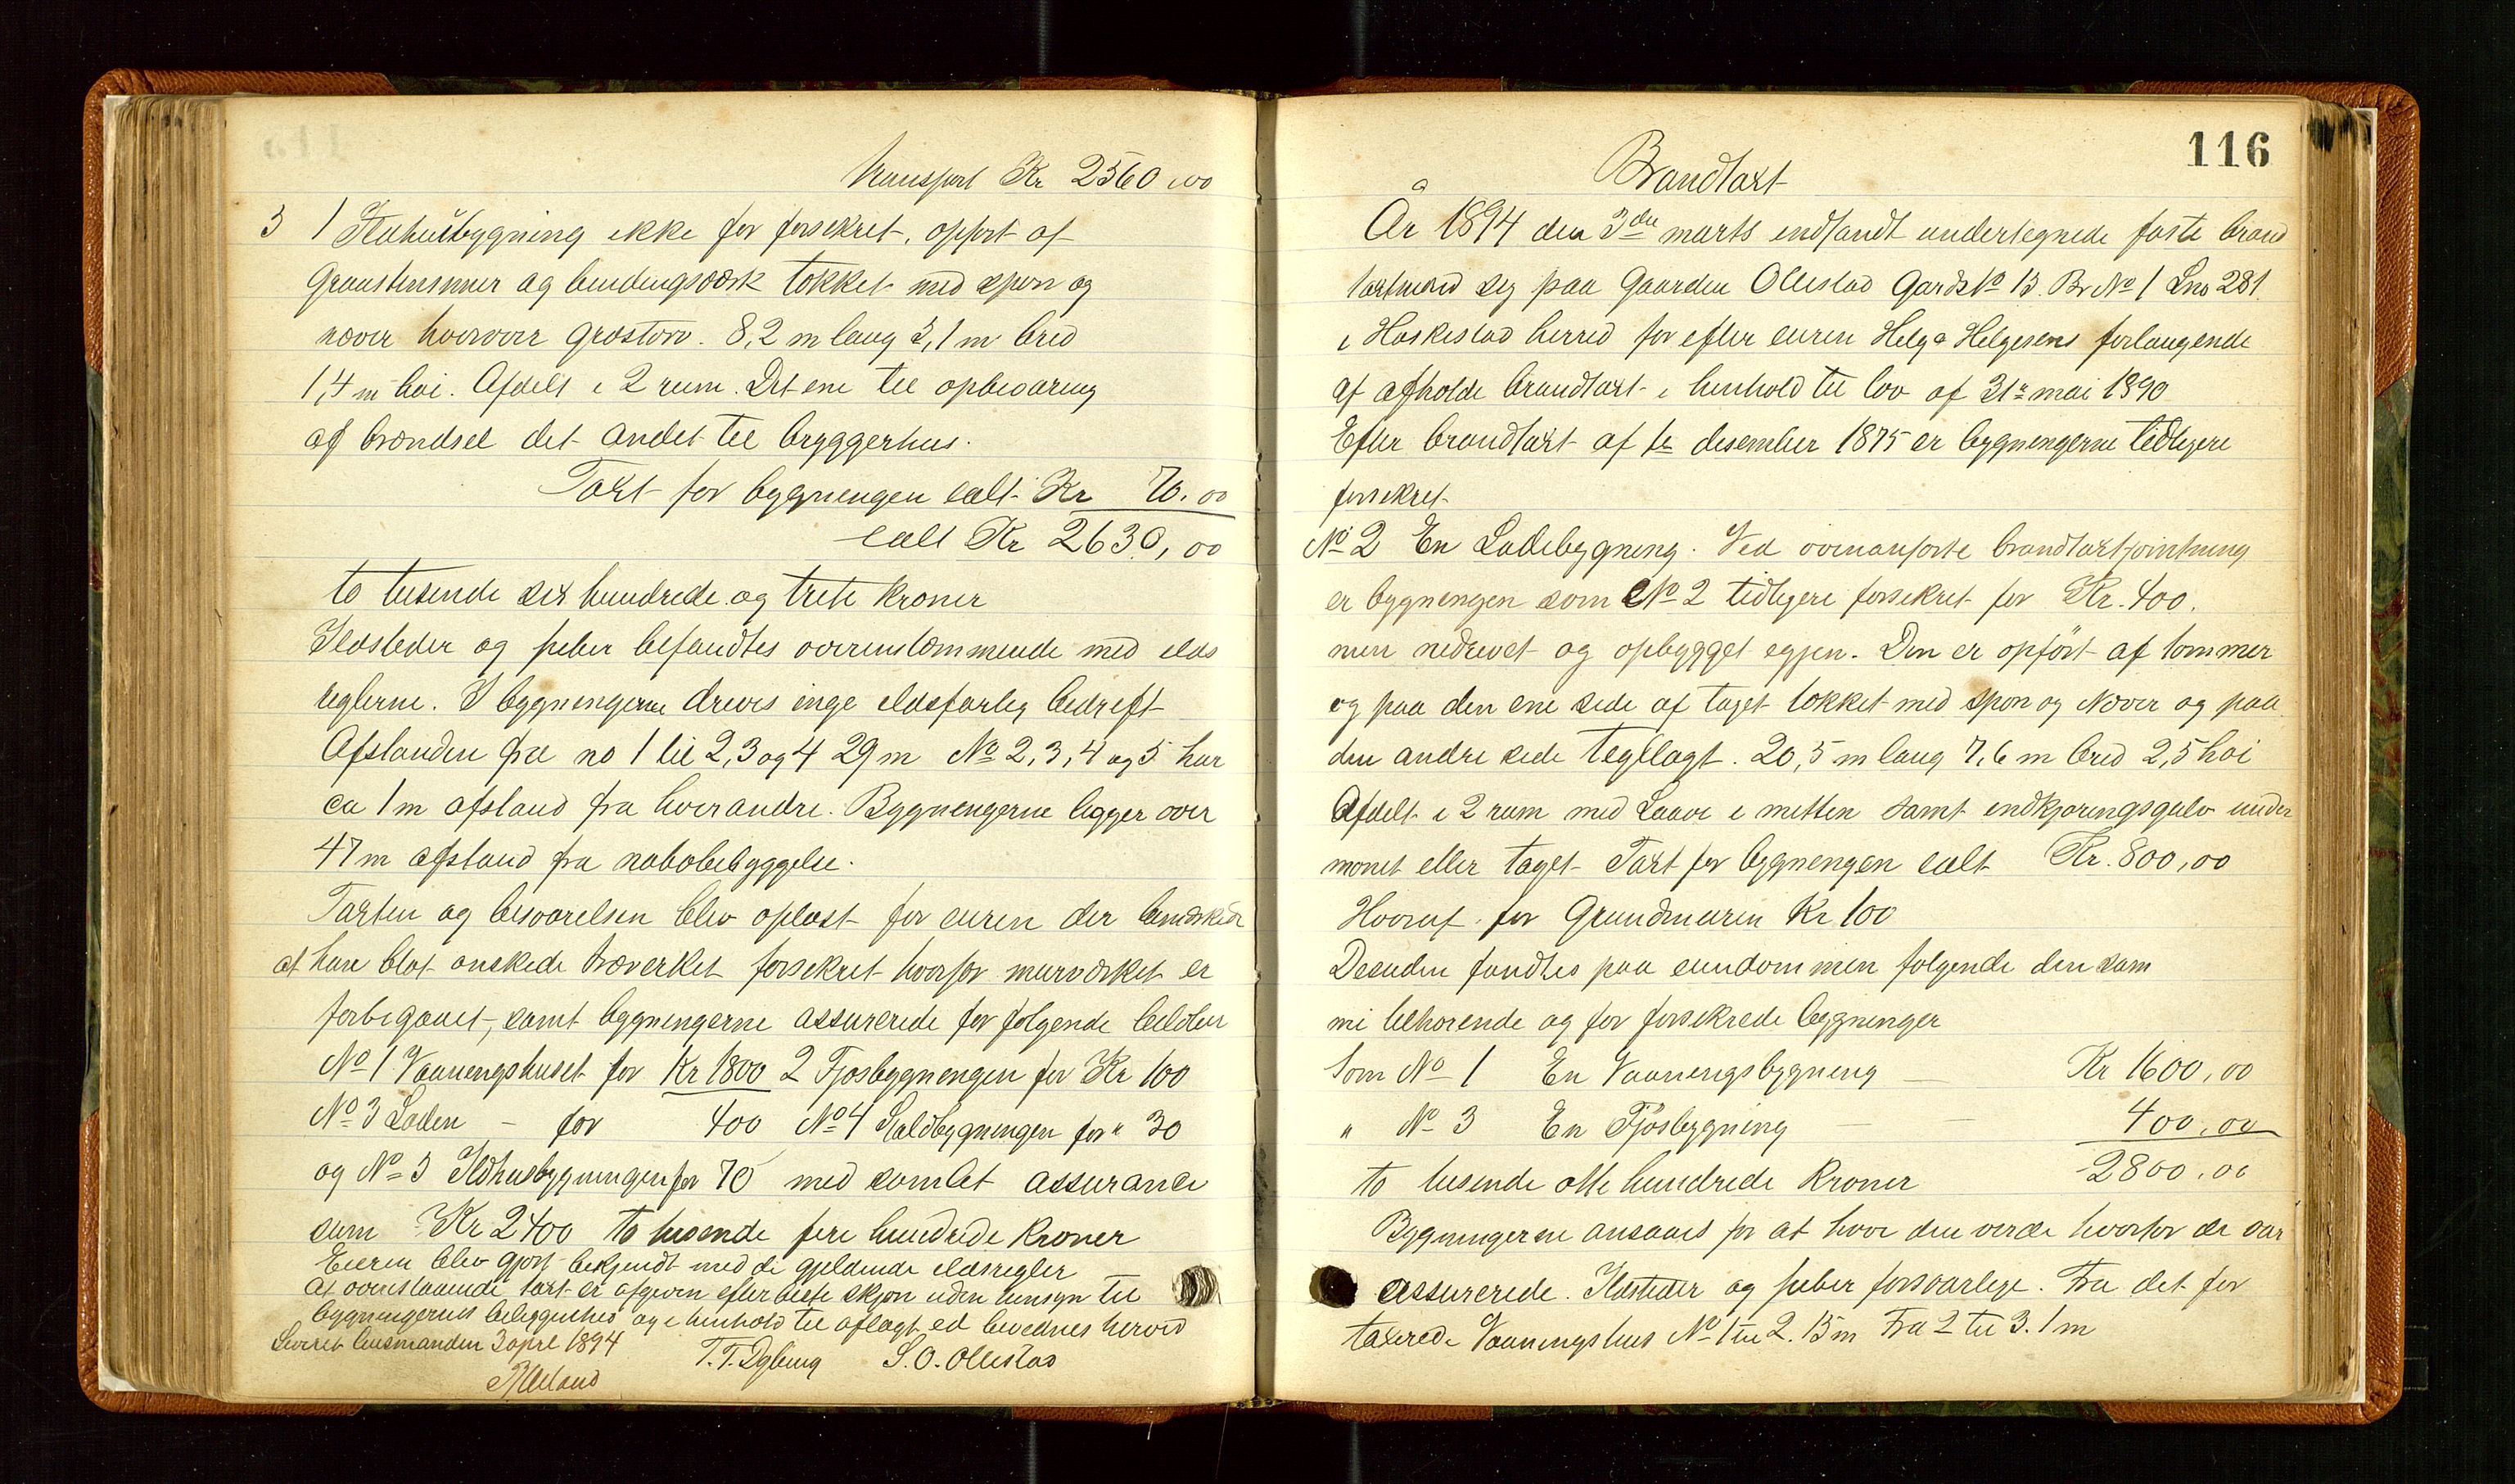 Transport Kr 2560,00
5 1 Ildhusbygning ikke før forsekret, opført af
Graastensmur og bindingsværk tækket med spon og
næver hvorover græstorv. 8,2 m lang 3,1 m bred
1,4 m høi. Afdelt i 2 rum. Det ene til opbevaring
af brændsel det andet til bryggerhus.
Taxt for bygningen ialt Kr 70.00
ialt Kr 2630,00
to tusende sex hundrede og treti kroner
Ildsteder og piber befandtes overenstemmende med ilds
reglerne. I bygningerne drives inge ildsfarlig bedreft
Afstanden fra no 1 til 2, 3 og 4 29 m No 2, 3, 4 og 5 har
ca 1 m afstand fra hverandre. Bygningerne ligger over
47 m afstand fra nabobebyggelse.
Taxten og besvarelsen blev oplæst for eieren der bemærkede
at han blot ønskede træverket forsekret hvorfor murværket er
forbigaaet, samt bygningerne assurerede for følgende beløber
No 1 Vaaningshuset for Kr 1800 2 Fjøsbygningen for Kr 100
No 3 Laden - for 400 No 4 Staldbygningen for " 30
og No 5 Ildhusbygningen for 70 med samlet assurance
sum Kr 2400 to tusende fire hundrede kroner
Eieren blev gjort bekjendt med de gjeldende ildsregler
At ovenstaaende taxt er afgiven efter beste skjøn uden hensyn til
bygningernes beliggenhed og i henhold til aflagt ed bevidnes herved
Leveret lensmanden 3 april 1894
T. T. Dybing S. O. Ollestad
116
Brandtaxt
År 1894 den 3die marts indfandt undertegnede faste brand
taxtmænd sig paa Gaarden Ollestad Gards No 13. Br No 1 Lno 281
i Haskestad herred for efter eieren Helge Helgesens forlangende
at afholde brandtaxt i henhold til lov af 31te mai 1890
Efter brandtaxt af 1te desember 1875 er bygningerne tidligere
forsekret
No 2 En Ladebygning. Ved ovenanførte brandtaxtforretning
er bygningen som No 2 tidligere forsekret for Kr. 400.
men nedrevet og opbygget igjen. Den er opført af tømmer
og paa den ene side af taget tækket med spon og Næver og paa
den andre side tegllagt. 20,5 m lang 7,6 m bred 2,5 høi
Afdelt i 2 rum med Laave i mitten samt indkjøringsgulv under
mønet eller taget Taxt for bygningen ialt Kr. 800,00
Hvoraf for Grundmuren Kr 100
Desuden fandtes paa eiendommen følgende den sam
me tilhørende og før forsekrede bygninger
Som No 1 En Vaaningsbygning Kr 1600,00
" No 3 En Fjøsbygning 400,00
to tusende otte hundrede Kroner 2800,00
Bygningerne ansaaes for at have den verde hvorfor de var
assurerede. Ildsteder og piber forsvarlige. Fra det før
taxerede Vaaningshus No 1 til 2. 15 m Fra 2 til 3. 1 m